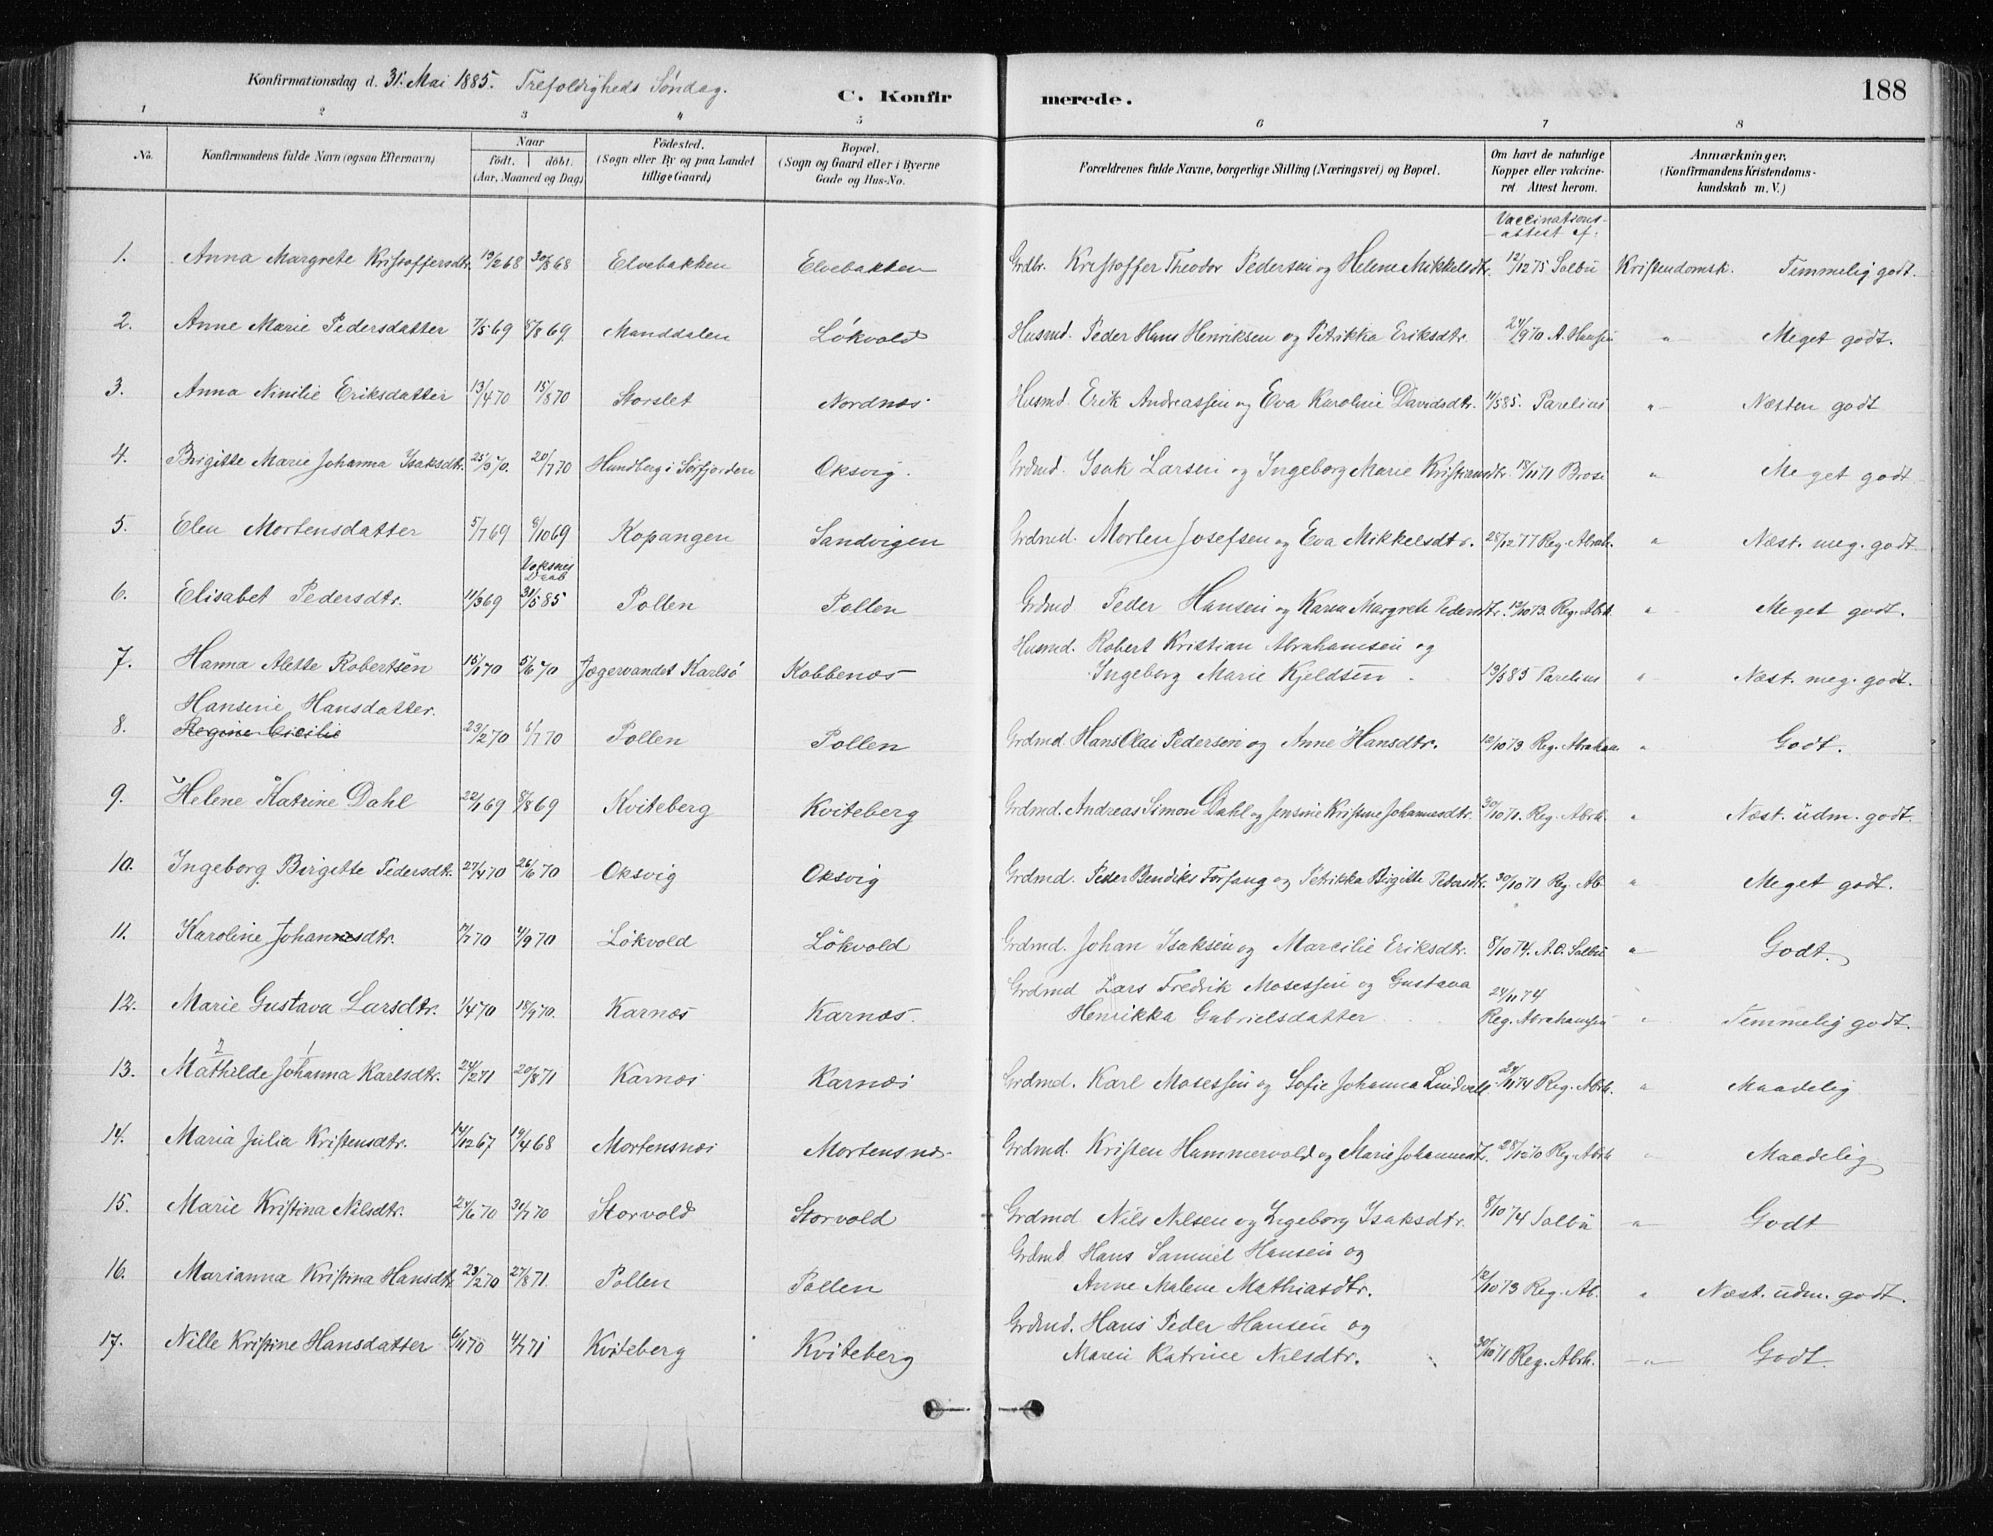 Konfirmationsdag d. 31. Mai 1885. Trefoldigheds Søndag. C. Konfirmerede. 188
1 2 3 4 5 6 7 8
No. Konfirmandens fulde Navn (ogsaa Efternavn) Naar födt. döbt. (Aar, Maaned og Dag) Födested. (Sogn eller By og paa Landet tillige Gaard) Bopæl. (Sogn og Gaard eller i Byerne Gade og Hus-No. Forældrenes fulde Navne, borgerlige Stilling (Næringsvei) og Bopæl. Om havt de naturlige Kopper eller vakcineret Attest herom. Anmærkninger. (Konfirmandens Kristendomskundskab m. V.)
Vaccinations-attest af.
1. Anna Margrete Kristoffersdtr. 19/2 68 30/8 68 Elvebakken Elvebakken Grdbr. Kristoffer Theodor Pedersen og Helene Mikkelsdtr. 12/12 75 Solbu Kristendomsk. Temmelig godt.
2. Anne Marie Pedersdatter 7/5 69 8/8 69 Manddalen Løkvold Husmd. Peder Hans Henriksen og Petrikka Eriksdtr. 24/9 70 A. Hansen " Meget godt.
3. Anna Nimilie Eriksdatter 13/4 70 15/8 70 Storslet Nordnæs Husmd Erik Andreassen og Eva Karoline Davidsdtr. 11/5 85. Parelius " Næsten godt
4. Birgitte Marie Johanna Isaksdtr. 25/3 70. 20/7 70 Hundberg i Sørfjorden Oksvig. Grdmd. Isak Larsen og Ingeborg Marie Kristiansdtr. 18/11 71 Brose " Meget godt
5. Elen Mortensdatter 5/7 69 8/10 69 Kopangen Sandvigen Grdmd. Morten Josefsen og Eva Mikkelsdtr. 28/12 77 Reg. Abrah. " Næst. meg. godt
Voksnes Daab
6. Elisabet Pedersdtr. 11/3 69 31/5 85 Pollen Pollen Grdmd Peder Hansen og Karen Margrete Pedersdtr. 12/10 73. Reg. Abrh. " Meget godt.
7. Hanna Alette Robertsen 15/1 70 5/6 70 Jægervandet Karlsø Kobbenæs Husmd. Robert Kristian Abrahamsen og
Ingeborg Marie Kjeldsen 19/5 85 Parelius " Næst. meg. godt.
Hansine Hansdatter.
8. Regine Cicilie 23/2 70 6/7 70 Pollen Pollen Grdmd. Hans Olai Pedersen og Anne Hansdtr. 12/10 73 Reg. Abraham " Godt.
9. Helene Katrine Dahl 22/1 69 8/8 69 Kviteberg Kviteberg Grdmd. Andreas Simon Dahl og Jensine Kristine Johannesdtr. 30/10 71. Reg. Abrh. " Næst. udm. godt.
10. Ingeborg Birgitte Pedersdtr. 27/4 70 26/6 70 Oksvig Oksvig Grdmd. Peder Bendiks Forfang og Petrikka Birgitte Petersdtr. 30/10 71 Reg. Ab. " Meget godt.
11. Karoline Johannesdtr. 7/7 70 4/9 70 Løkvold Løkvold Grdmd. Johan Isaksen og Marcilie Eriksdtr. 8/10 74. A.O. Solbu " Godt.
12. Marie Gustava Larsdtr. 1/4 70 18/9 70. Karnæs Karnæs. Grdmd Lars Fredrik Mosessen og Gustava
Henrikka Gabrielsdatter 24/11 74 Reg. Abrahamsen " Temmelig godt.
2 1
13. Mathilde Johanna Karlsdtr. 24/2 71 20/8 71 Karnæs Karnæs Grdmd. Karl Mosessen og Sofie Johanna Lindvall 24/11 74 Reg. Abrh. " Maadelig
14. Maria Julia Kristensdtr. 14/12 67 19/4 68 Mortensnæs Mortensnæs Grdmd. Kristen Hammervold og Marie Johannesdtr. 28/12 70 Reg. Abrh " Maadelig
15. Marie Kristina Nilsdtr. 24/6 70 31/7 70 Storvold Storvold Grdmd Nils Nilsen og Ingeborg Isaksdtr. 8/10 74 Solbu " Godt
16. Marianna Kristina Hansdtr. 23/2 70 27/8 71. Pollen Pollen Grdmd. Hans Samuel Hansen og
Anne Malene Mathiasdtr. 12/10 73 Reg. Ab. " Næst. udm. godt.
17. Nille Kristine Hansdatter 6/11 70 4/7 71 Kviteberg Kviteberg Grdmd. Hans Peder Hansen og
Maren Katrine Nilsdtr. 30/10 71 Reg. Abrh. " Godt.